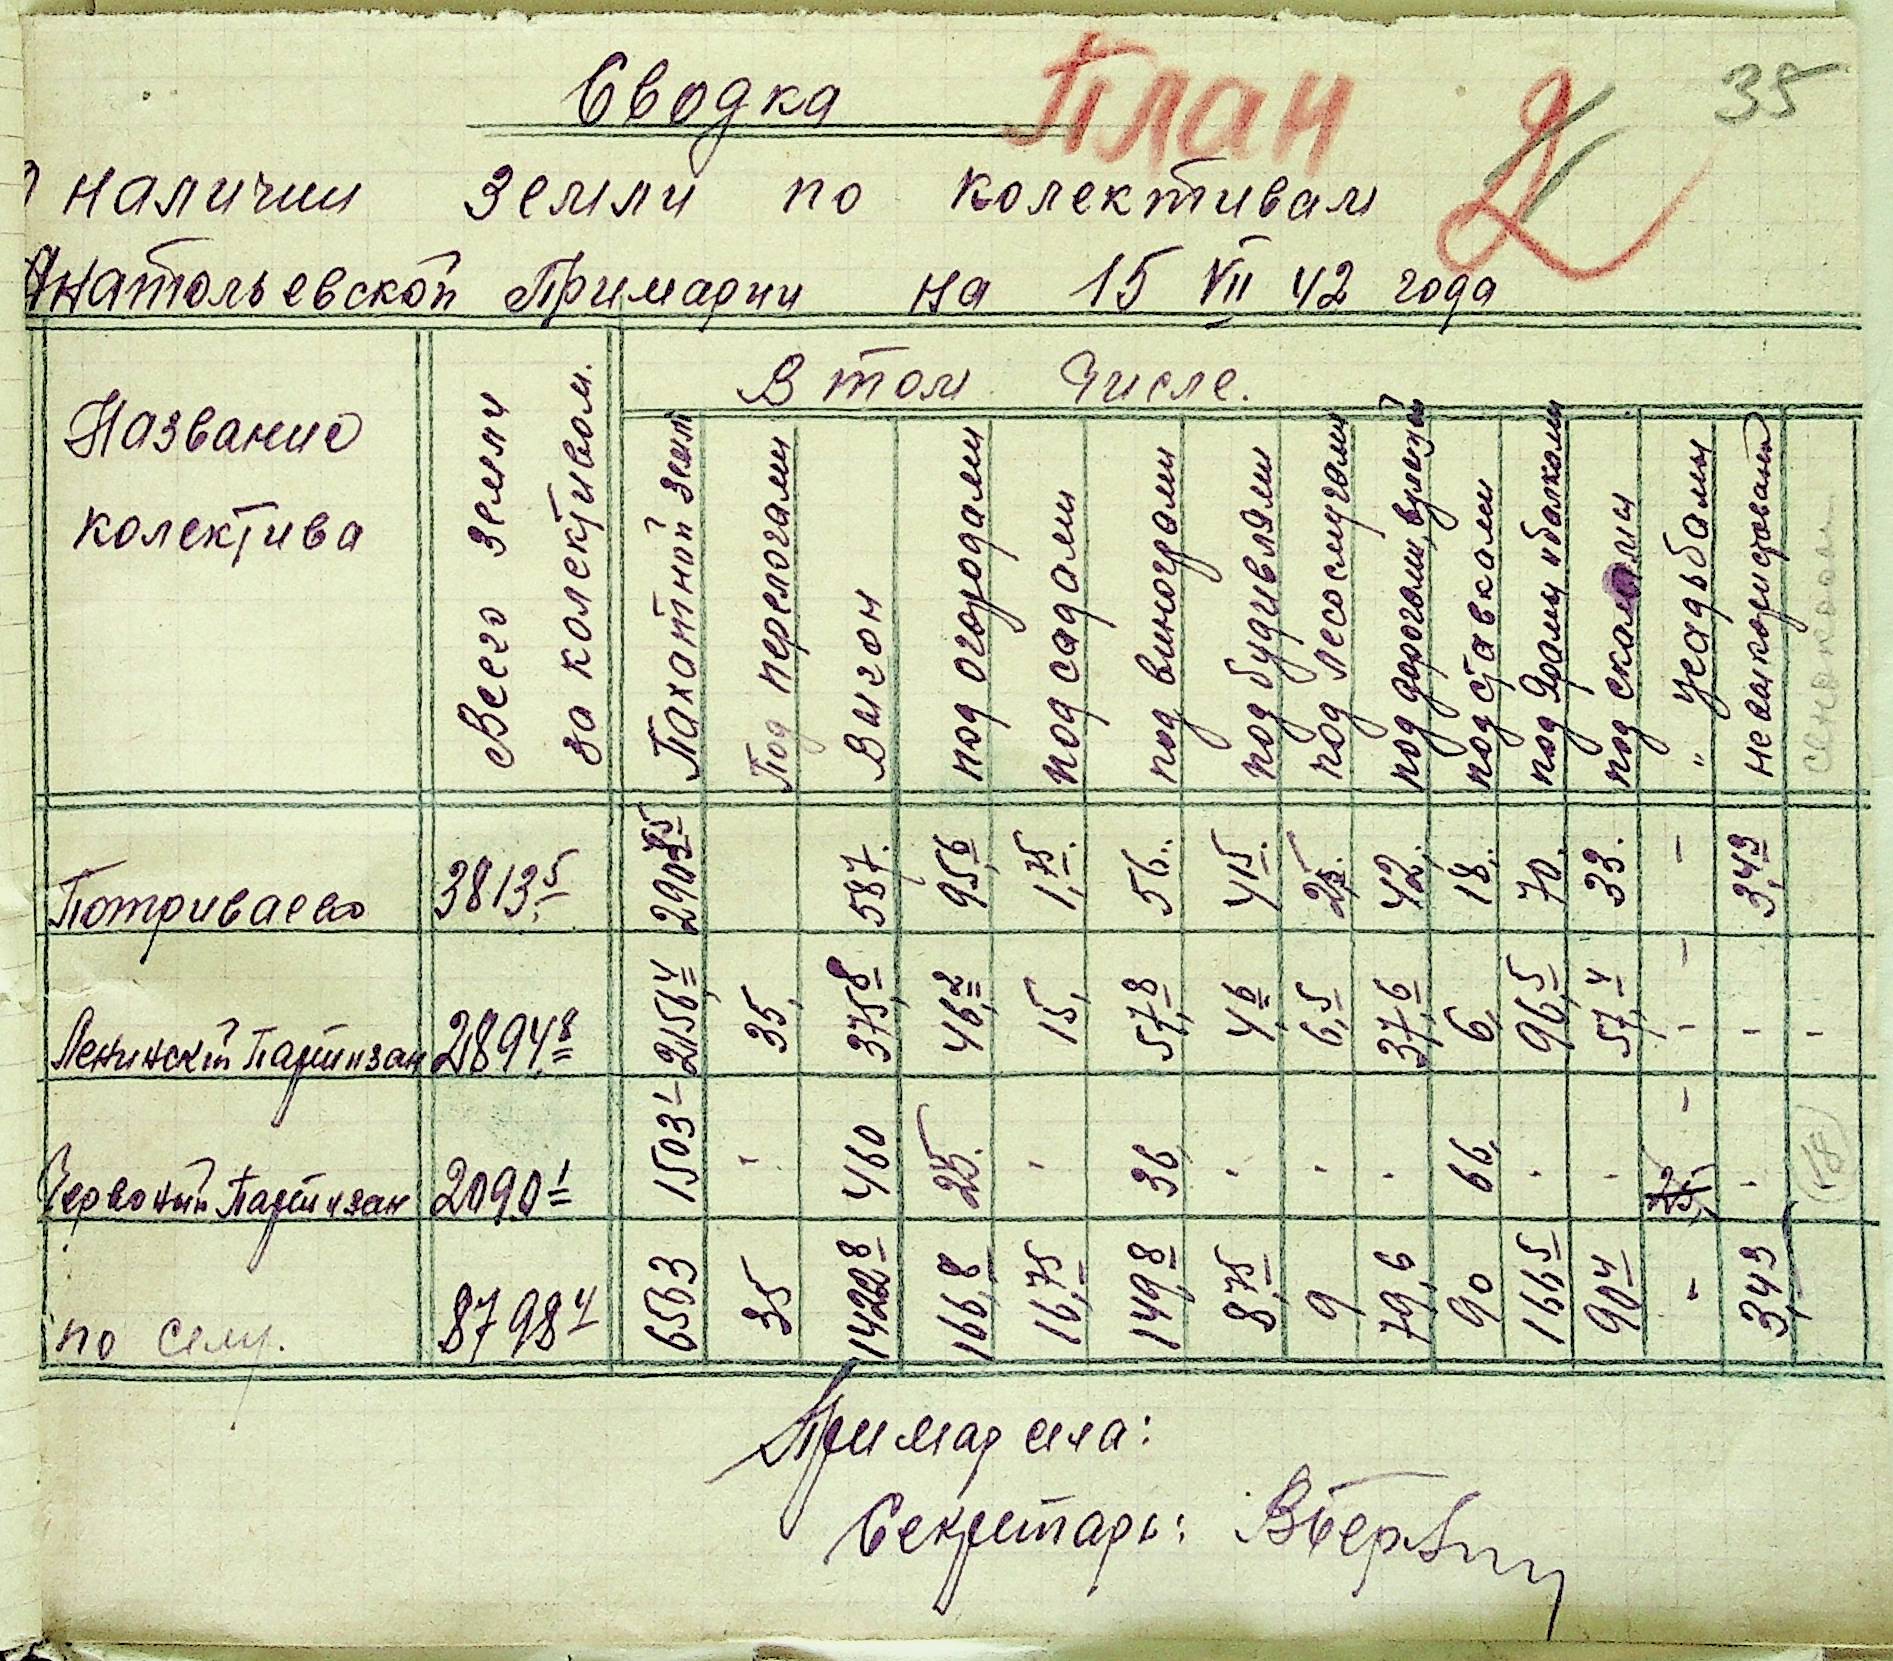 Сводка
План
35
О наличии земли по колективам
Анатольевской Примарии на 15 VII 42 года
Название колектива
Всего земли за колективом.
В том числе.
Пахатной земл
Под перелогами
Выгон
под огородами
под садами
под виноградами
под будивлями
под лесосмугами
под дорогами, вулиця
под ставками
под ярами и балками
под скалами
" усадьбами
сенокосом
Потриваево 3813,5 587. 95,6 1,75. 56.. 4,15. 42. 18. 70. 33. - 3,43
Ленинский Партизан 2894,8 2156,4 35, 375,8 46,2 15, 57,8 4,6 6,5 37,6 6, 96,5 57,4 - . .
Червоный Партизан 2090,1 1503,1 - 460 25. - 36 . . . 66, . . 25, . 18
по селу. 8798,4 6563 35 1422,8 166,8 16,75 149,8 8,75 9 79,6 90 166,5 90,4 - 3,43
Примар села:
Секретарь: